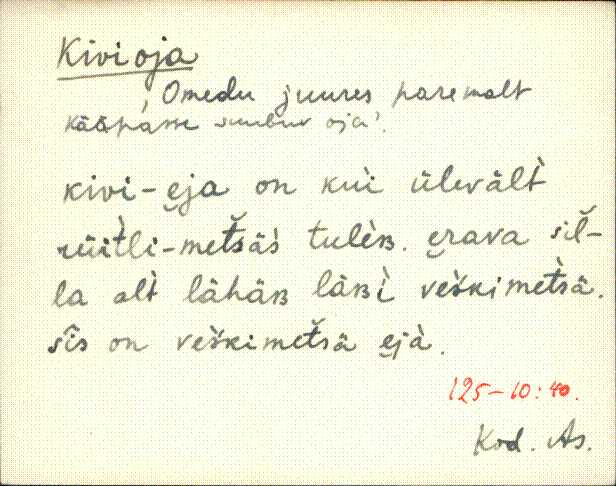 Kivi oja
'Omedu juures paremalt
Kääpasse suubuv oja'.
kivi-e̮ja on kui ülevält̀
rüìtli-met̆säs̀ tulèʙ. e̮rava sil̆-
la alt̀ lähäʙ läʙì vèškimet̀sä.
sîs on vèškimet̆sä e̮jà.
125-10:40.
Kod. As.